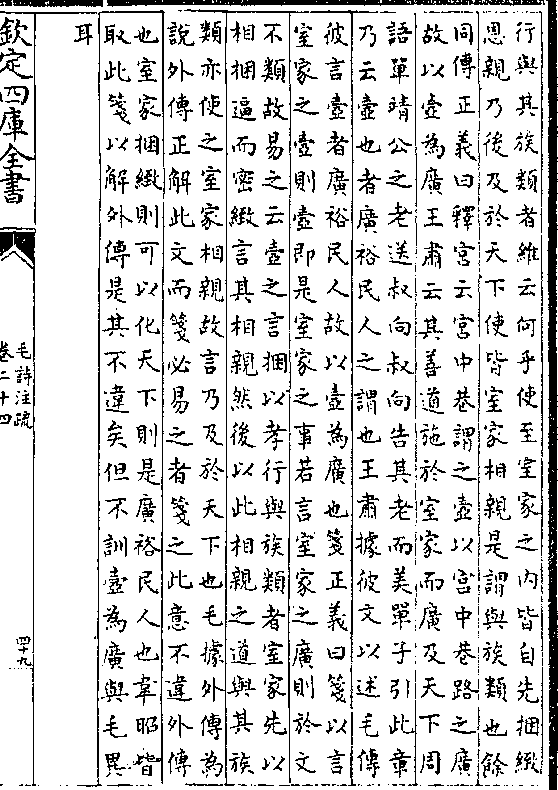 行與其族類者維云何乎使至室家之内皆自先捆緻
恩親乃後及於天下使皆室家相親是謂與族類也餘
同傳正義曰釋宮云宮中巷謂之壼以宮中巷路之廣
故以壼為廣王肅云其善道施於室家而廣及天下周
語單靖公之老送叔向叔向告其老而美單子引此章
乃云壼也者廣裕民人之謂也王肅據彼文以述毛傳
彼言壼者廣裕民人故以壼為廣也箋正義曰箋以言
室家之壼則壼即是室家之事若言室家之廣則於文
不類故易之云壼之言捆以孝行與族類者室家先以
相捆逼而密緻言其相親然後以此相親之道與其族
類亦使之室家相親故言乃及於天下也毛據外傳為
說外傳正解此文而箋必易之者箋之此意不違外傳
也室家捆緻則可以化天下則是廣裕民人也韋昭皆
取此箋以解外傳是其不違矣但不訓壼為廣與毛異
耳
欽定四庫全書
毛詩注疏
卷二十四
四十九